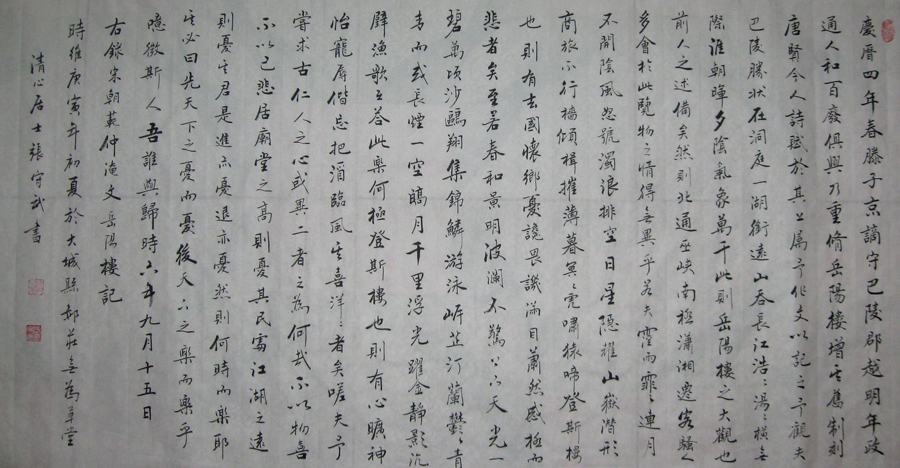 慶曆四年春滕子京謫守巴陵郡越明年政
通人和百廢俱興乃重脩岳陽樓增其舊制刻
唐賢今人詩賦於其上屬予作文以記之予觀夫
巴陵勝狀在洞庭一湖銜遠山吞長江浩浩湯湯橫無
際涯朝暉夕陰氣象萬千此則岳陽樓之大觀也
前人之述備矣然則北通巫峽南極瀟湘遷客騷人
多會於此覽物之情得無異乎若夫霪雨霏霏連月
不開陰風怒號濁浪排空日星隱耀山嶽潛形
商旅不行檣傾楫摧薄暮冥冥虎嘯猿啼登斯樓
也則有去國懷鄉憂讒畏譏滿目蕭然感極而
悲者矣至若春和景明波瀾不驚上下天光一
碧萬頃沙鷗翔集錦鱗游泳岸芷汀蘭鬱鬱青
青而或長煙一空皓月千里浮光躍金靜影沉
璧漁歌互答此樂何極登斯樓也則有心曠神
怡寵辱偕忘把酒臨風其喜洋洋者矣嗟夫予
嘗求古仁人之心或異二者之為何哉不以物喜
不以己悲居廟堂之高則憂其民處江湖之遠
則憂其君是進亦憂退亦憂然則何時而樂耶
其必曰先天下之憂而憂後天下之樂而樂乎
噫微斯人吾誰與歸時六年九月十五日
右錄宋朝范仲淹文岳陽樓記
時維庚寅年初夏於大城縣郝莊無為草堂
清心居士張守武書